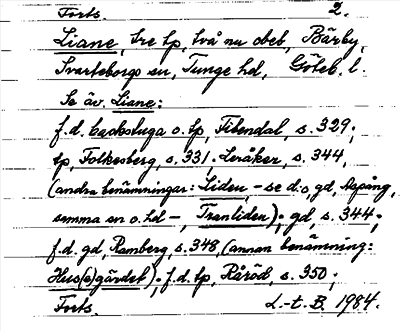 Forts. 2.
Liane, tre tp, två nu obet, Bärby,
Svarteborgs sn, Tunge hd, Göteb. l.
Se äv. Liane:
f.d. backstuga o. tp, Tibendal, s. 329;
tp, Folkesberg, s. 331; Leråker, s. 344,
(andra benämningar: Liden, - se d:o, gd, Aspång,
samma sn o. hd -, Tranliden); gd, s. 344;
f.d. gd, Ramberg, s. 348, (annan benämning:
Hus(e)gärdet); f.d. tp, Råröd, s. 350;
Forts. L.-t. B. 1984.